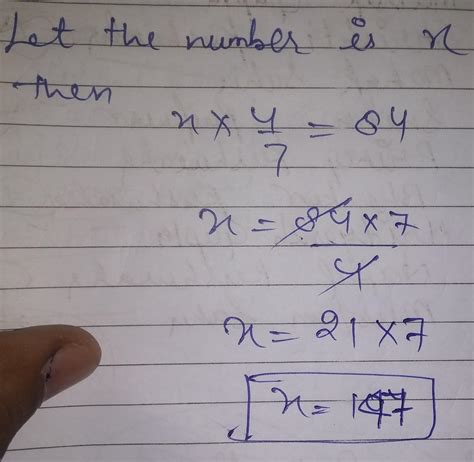 Let the number is x
then
x × 4/7 = 84
x = 84 × 7 / 4
x = 21 × 7
x = 147